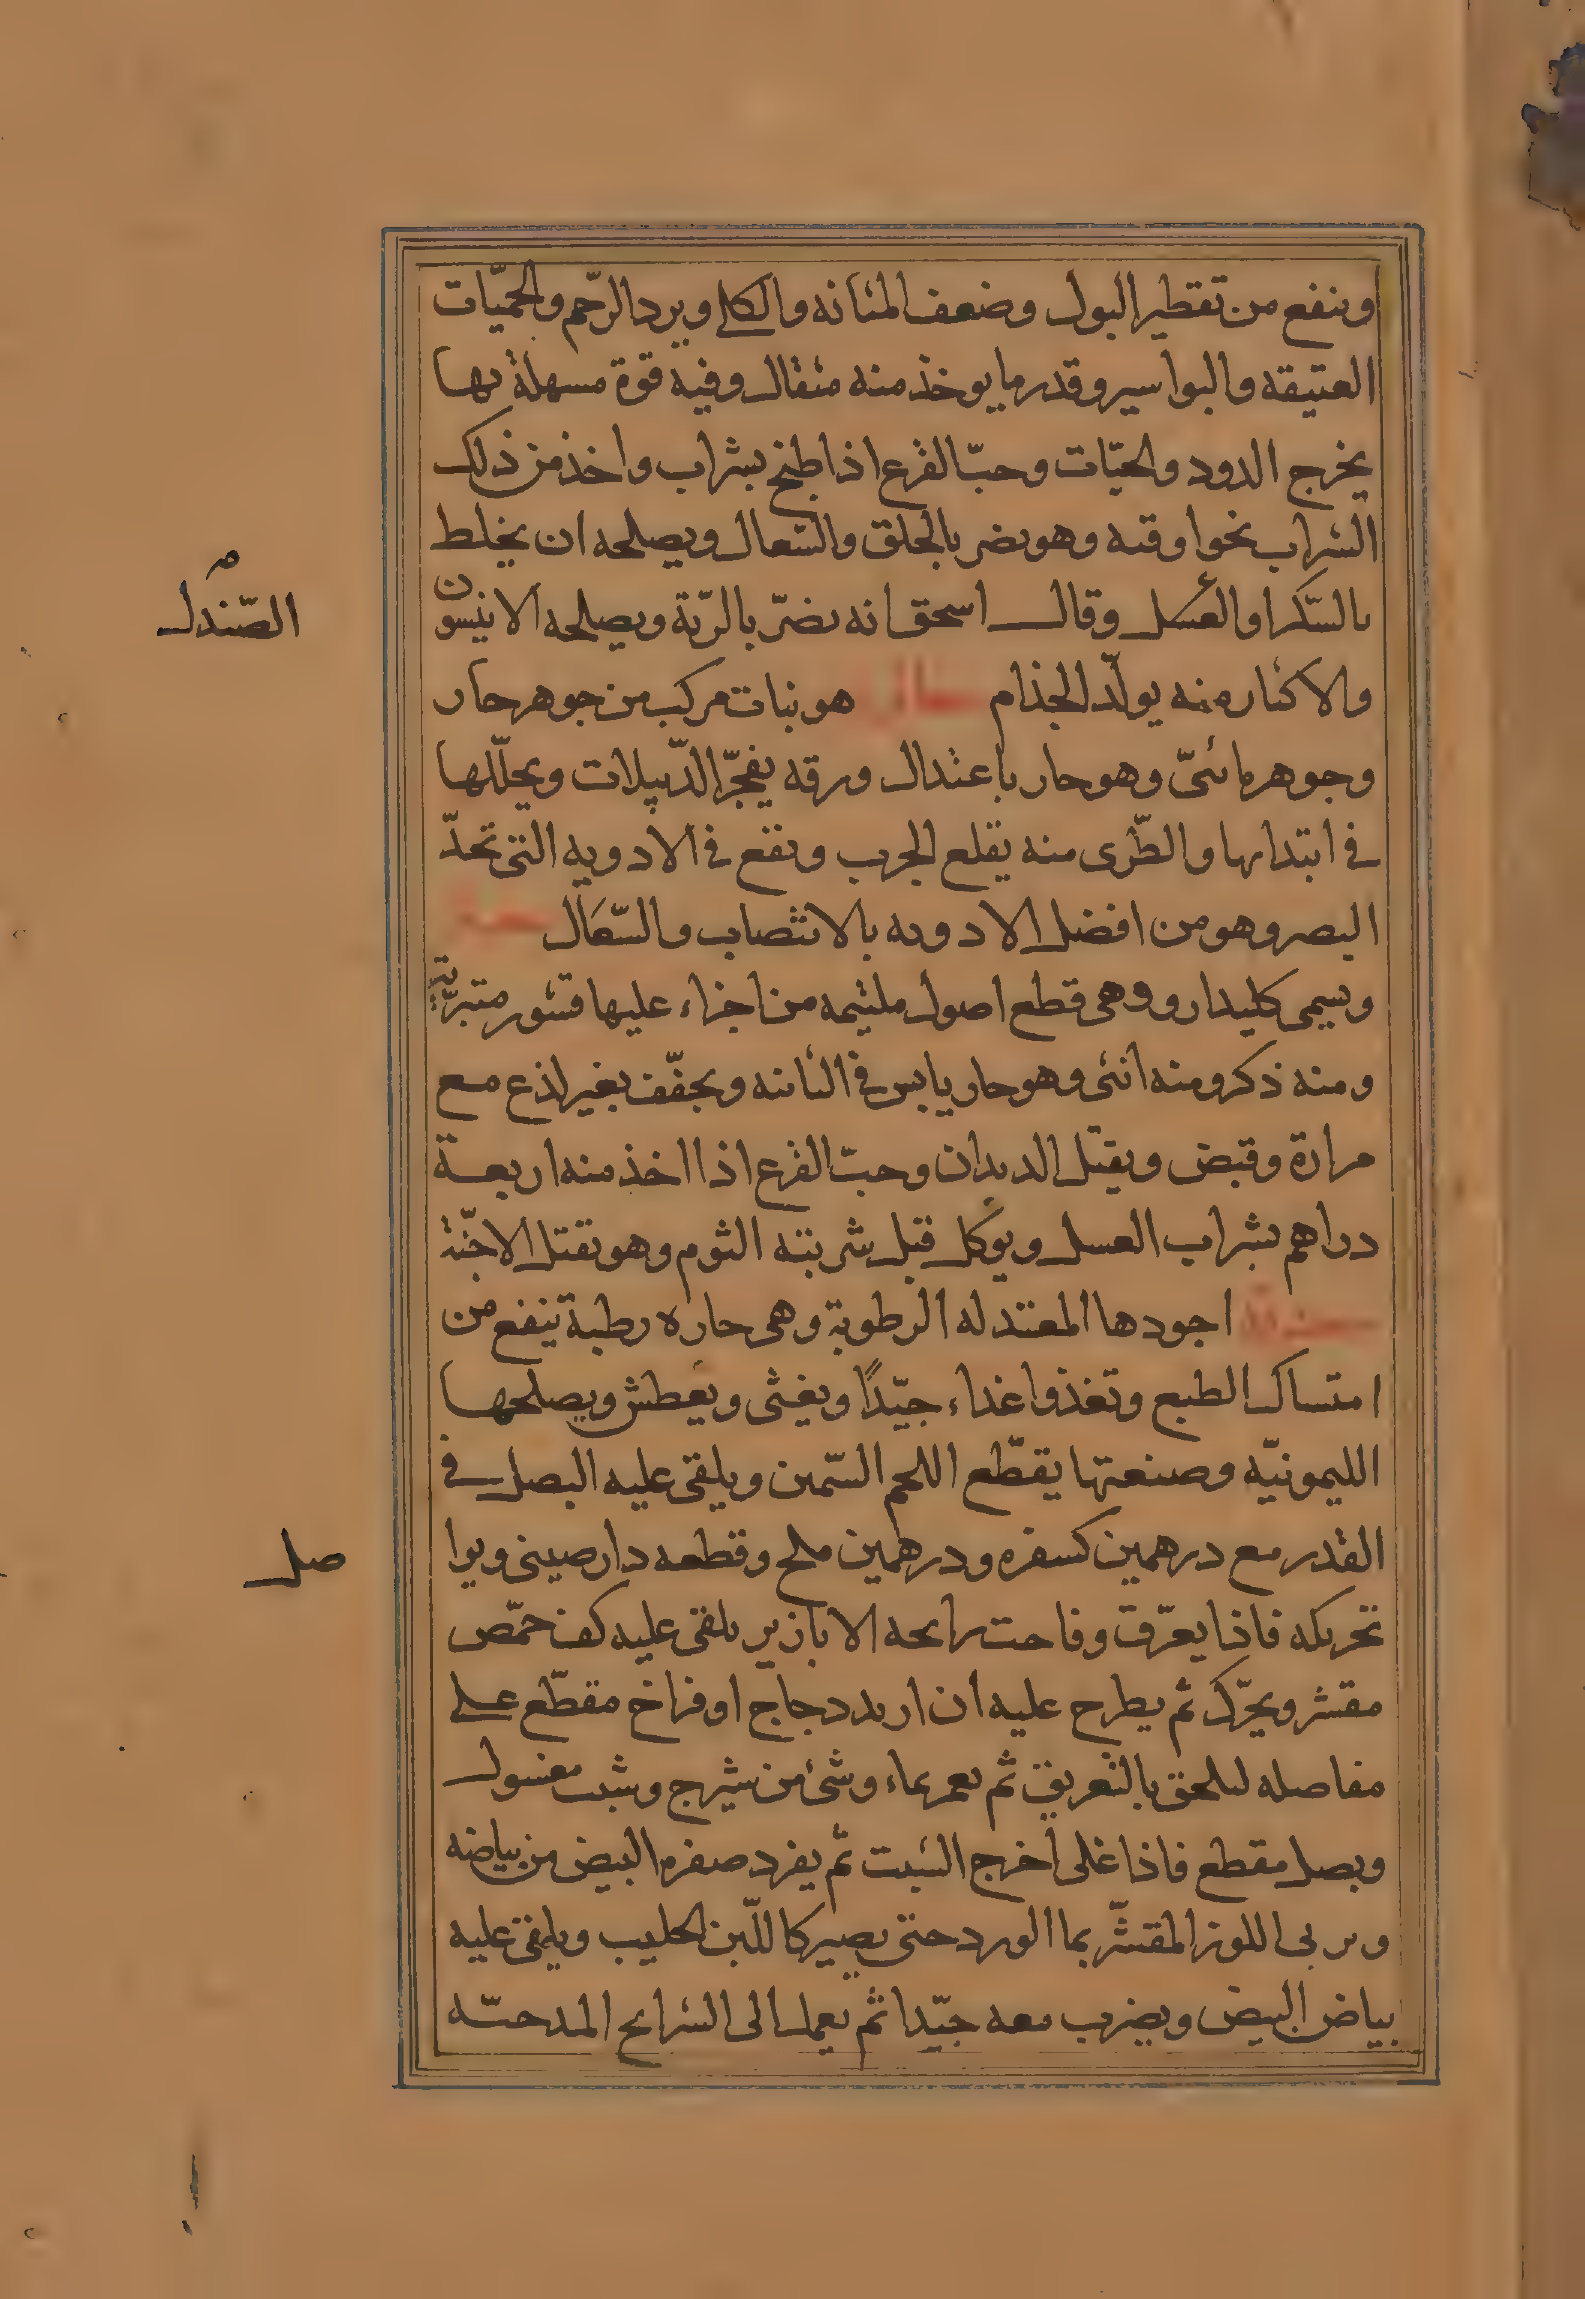 وينفع من تقطير البول وضعف المثانه والكلى وبرد الرّحم والحميّات
العتيقه والبواسير وقدر ما يوخذ منه مثقال وفيه قوة مسهلة بها
يخرج الدود والحيّات وحبّ القرع اذا طبخ بشراب واخذ من ذلك
الشراب نحو اوقيه وهو يضر بالحلق والسّعال ويصلحه ان يخلط
بالسّكر او العسل وقال اسحق انه يضرّ بالرّية ويصلحه الانيسون
الصّندل
والاكثار منه يولّد الجذام هو نبات مركب من جوهر حار
وجوهر مائىّ وهو حار باعتدال ورقه يفجّر الدّبيلات ويحلّلها
فى ابتدايها والطّرى منه يقلع الجرب ويقع فى الادويه التى تحدّ
البصر وهو من افضل الادويه بالانتصاب والسّعال
ويسمى كليدارو وهى قطع اصول ملتيمه من اجزاء عليها قشور متبرّية
ومنه ذكر ومنه انثى وهو حار يابس فى الثانيه ويجفّف بغير لذع مع
مرارة وقبض ويقتل الديدان وحبّ القرع اذا اخذ منه اربعة
دراهم بشراب العسل ويوكل قبل شربته الثوم وهو يقتل الاجنّة
اجودها المعتدله الرطوبة وهى حاره رطبة ينفع من
امتساك الطبع وتغذوا غذاء جيّدًا ويغثى ويعطش ويصلحها
الليمونيّه وصنعتها يقطّع اللحم السّمين ويلقى عليه البصل فى
القدر مع درهمين كسفره ودرهمين ملح وقطعه دارصينى ويوا
صل
تحريكه فاذا يعرّق وفاحت رايحه الابازير يلقى عليه كف حمّص
مقشر ويحرّك ثم يطرح عليه ان اريد دجاج او فراخ مقطّع على
مفاصله ليلحق بالتعريق ثم يعمر بماء وشئ من شيرج وشبت مغسول
وبصل مقطع فاذا غلى أخرج الشبت ثم يفرد صفره البيض من بياضه
ويربى اللوز المقشّر بما الورد حتى يصير كاللّبن الحليب ويلقى عليه
بياض البيض ويضرب معه جيّدا ثم يعمل الى الشرايح